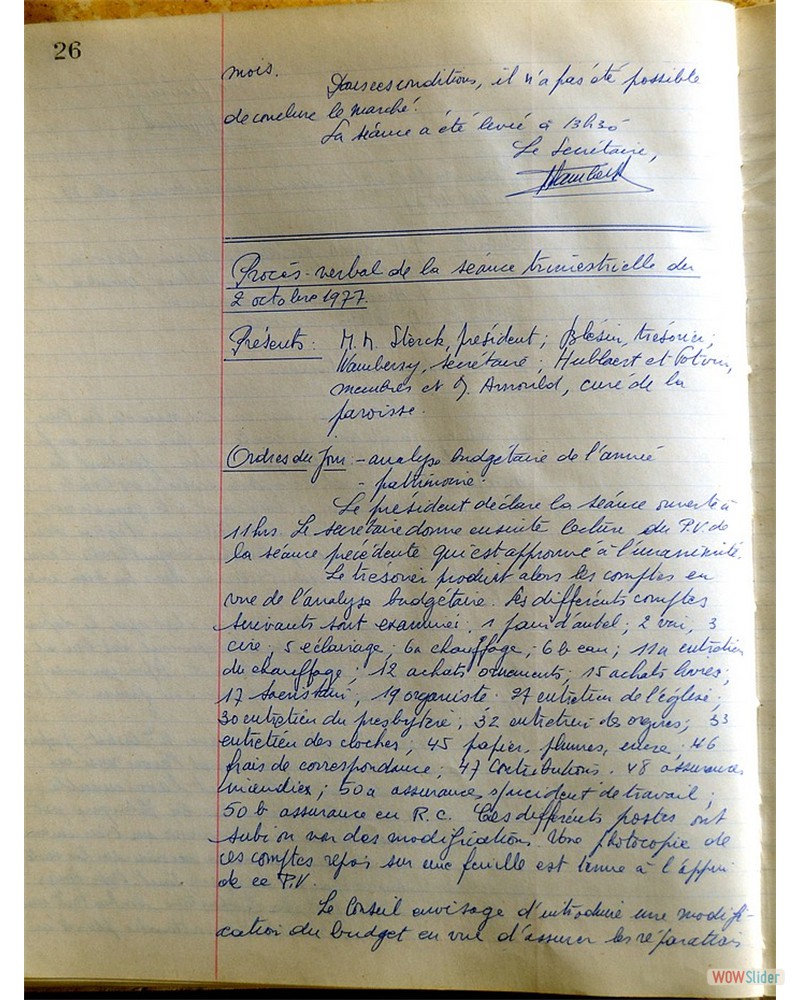 26
mois.
Dans ces conditions, il n'a pas été possible
de conclure le marché.
La séance a été levée à 13h30
Le Secrétaire,
Procès-verbal de la séance trimestrielle du
2 octobre 1977.
Présents: M.M. Sterck, président; Blésin, trésorier;
Wambersy, secrétaire; Hublaert et Potvin,
membres et J. Arnould, curé de la
paroisse.
Ordres du Jour: - analyse budgétaire de l'année
- patrimoine.
Le président déclare la séance ouverte à
11hrs. Le secrétaire donne ensuite lecture du P.V. de
la séance précédente qui est approuvé à l'unanimité.
Le trésorier produit alors les comptes en
vue de l'analyse budgétaire. Les différents comptes
suivants sont examinés: 1 pain d'autel; 2 vin, 3
cire; 5 éclairage; 6a chauffage; 6b eau; 11a entretien
du chauffage; 12 achats ornements; 15 achats livres;
17 sacristain; 19 organiste. 27 entretien de l'église;
30 entretien du presbytère; 32 entretien des orgues; 33
entretien des cloches; 45 papier, plumes, encre; 46
frais de correspondance; 47 Contributions. 48 assurances
incendies; 50a assurances s/incident de travail;
50b assurance en R.C. Ces différents postes ont
subi ou non des modifications. Une photocopie de
ces comptes repris sur une feuille est tenue à l'appui
de ce P.V.
Le Conseil envisage d'introduire une modifi-
cation du budget en vue d'assurer les réparations
WOWSlider